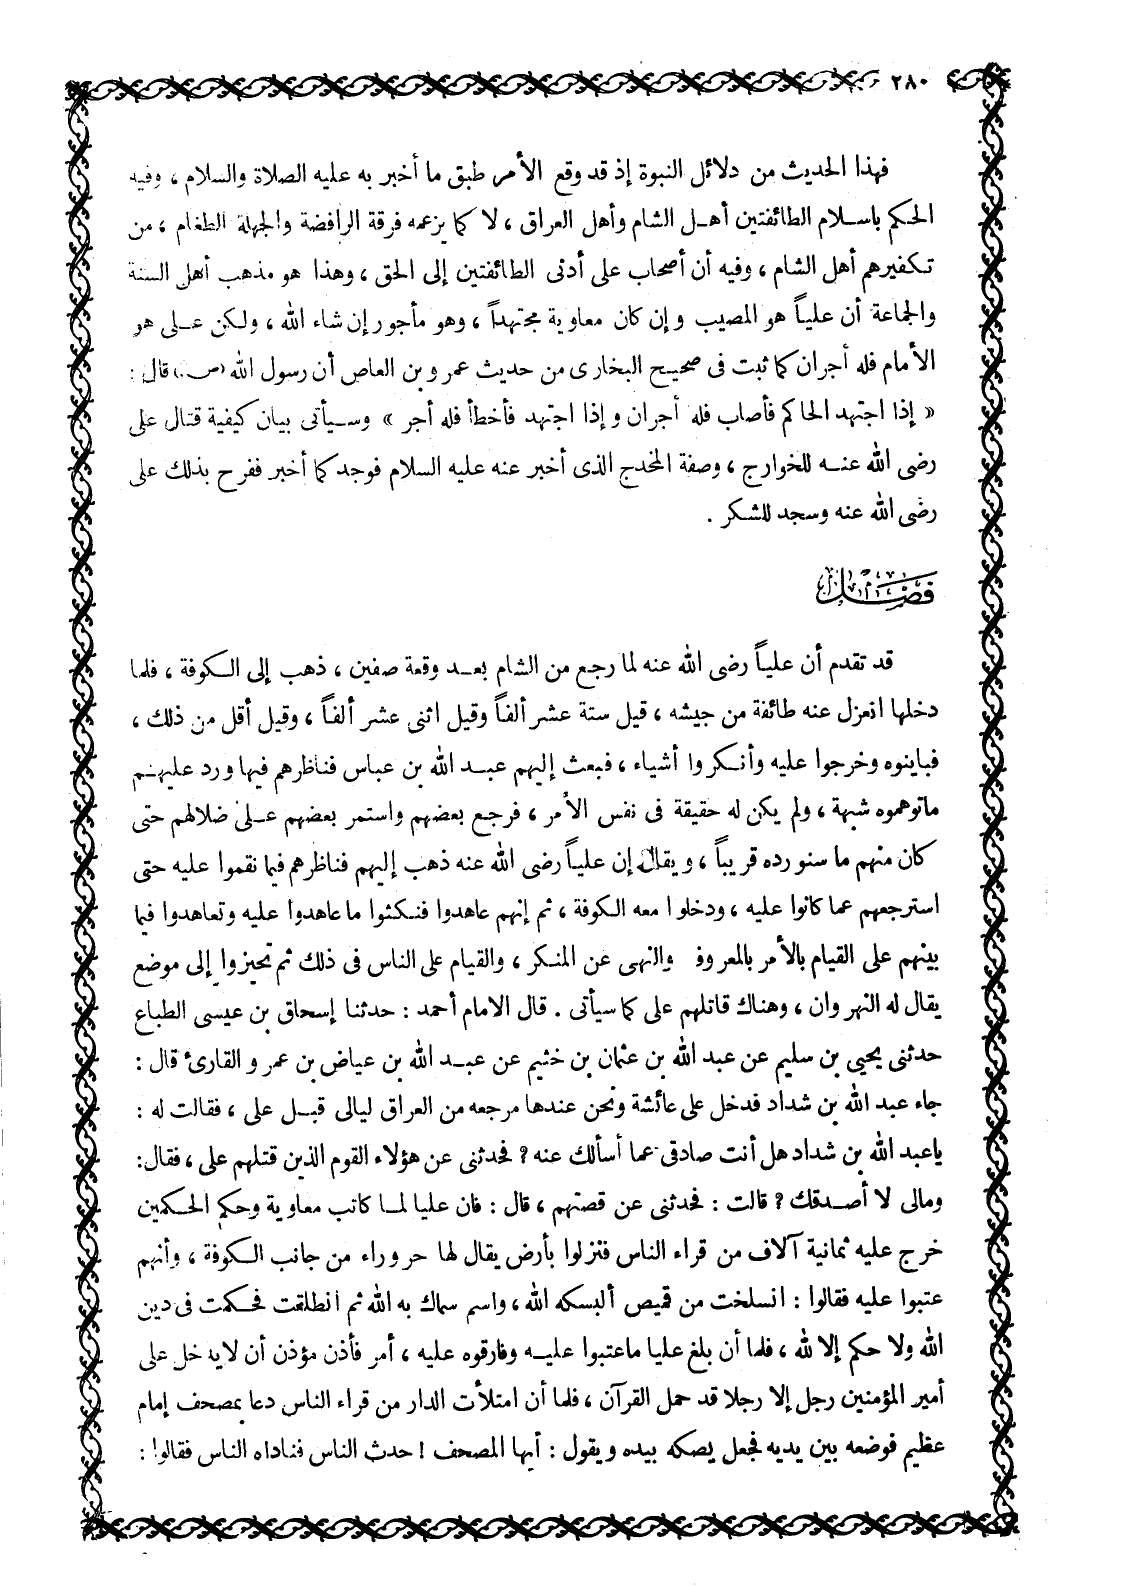 ٢٨٠
فهذا الحديث من دلائل النبوة إذ قد وقع الأمر طبق ما أخبر به عليه الصلاة والسلام ، وفيه
الحكم باسلام الطائفتين أهل الشام وأهل العراق ، لا كما يزعمه فرقة الرافضة والجهلة الطغام ، من
تكفيرهم أهل الشام ، وفيه أن أصحاب على أدنى الطائفتين إلى الحق ، وهذا هو مذهب أهل السنة
والجماعة أن علياً هو المصيب وإن كان معاوية مجتهداً ، وهو مأجور إن شاء الله ، ولكن على هو
الأمام فله أجران كما ثبت فى صحيح البخارى من حديث عمرو بن العاص أن رسول الله (ص) قال :
« إذا اجتهد الحاكم فأصاب فله أجران وإذا اجتهد فأخطأ فله أجر » وسيأتى بيان كيفية قتال على
رضى الله عنه للخوارج ، وصفة المخدج الذى أخبر عنه عليه السلام فوجد كما أخبر ففرح بذلك على
رضى الله عنه وسجد للشكر .
فصل
قد تقدم أن علياً رضى الله عنه لما رجع من الشام بعد وقعة صفين ، ذهب إلى الكوفة ، فلما
دخلها انعزل عنه طائفة من جيشه ، قيل ستة عشر ألفاً وقيل اثنى عشر ألفاً ، وقيل أقل من ذلك ،
فباينوه وخرجوا عليه وأنكروا أشياء ، فبعث إليهم عبد الله بن عباس فناظرهم فيها ورد عليهم
ماتوهموه شبهة ، ولم يكن له حقيقة فى نفس الأمر ، فرجع بعضهم واستمر بعضهم على ضلالهم حتى
كان منهم ما سنورده قريباً ، ويقال إن علياً رضى الله عنه ذهب إليهم فناظرهم فيما نقموا عليه حتى
استرجعهم عما كانوا عليه ، ودخلوا معه الكوفة ، ثم إنهم عاهدوا فنكثوا ما عاهدوا عليه وتعاهدوا فيما
بينهم على القيام بالأمر بالمعروف والنهى عن المنكر ، والقيام على الناس فى ذلك ثم تحيزوا إلى موضع
يقال له النهروان ، وهناك قاتلهم على كما سيأتى . قال الامام أحمد : حدثنا إسحاق بن عيسى الطباع
حدثنى يحيى بن سليم عن عبد الله بن عثمان بن خثيم عن عبد الله بن عياض بن عمرو القارئ قال :
جاء عبد الله بن شداد فدخل على عائشة ونحن عندها مرجعه من العراق ليالى قبل على ، فقالت له :
ياعبد الله بن شداد هل أنت صادقى عما أسألك عنه ? فحدثنى عن هؤلاء القوم الذين قتلهم على ، فقال:
ومالى لا أصدقك ? قالت : فحدثنى عن قصتهم ، قال : فان عليا لما كاتب معاوية وحكم الحكمين
خرج عليه ثمانية آلاف من قراء الناس فنزلوا بأرض يقال لها حروراء من جانب الكوفة ، وأنهم
عتبوا عليه فقالوا : انسلخت من قميص ألبسكه الله ، واسم سماك به الله ثم انطلقت فحكمت فى دين
الله ولا حكم إلا لله ، فلما أن بلغ عليا ماعتبوا عليه وفارقوه عليه ، أمر فأذن مؤذن أن لايدخل على
أمير المؤمنين رجل إلا رجلا قد حمل القرآن ، فلما أن امتلأت الدار من قراء الناس دعا بمصحف إمام
عظيم فوضعه بين يديه فجعل يصكه بيده ويقول : أيها المصحف ! حدث الناس فناداه الناس فقالوا :